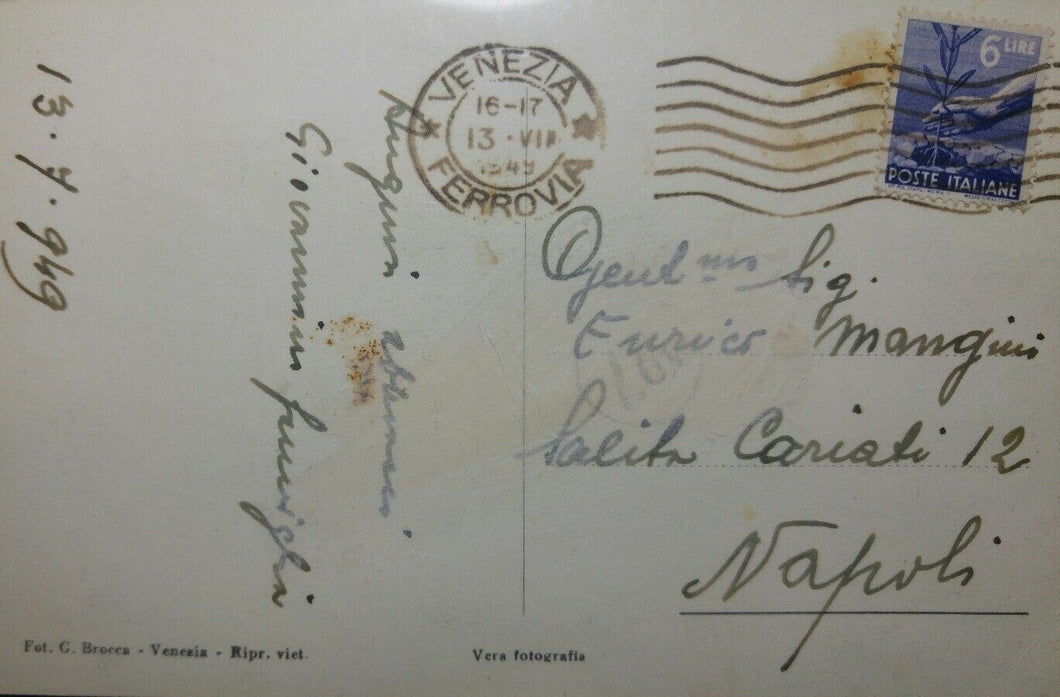 13.7.949
Auguri
Giovannini famiglia
VENEZIA
16-17
13 · VII
1949
FERROVIA
6 LIRE
POSTE ITALIANE
Gent mo Sig.
Enrico Mangini
Salita Cariati 12
Napoli
Fot. G. Brocca - Venezia - Ripr. viet.
Vera fotografia